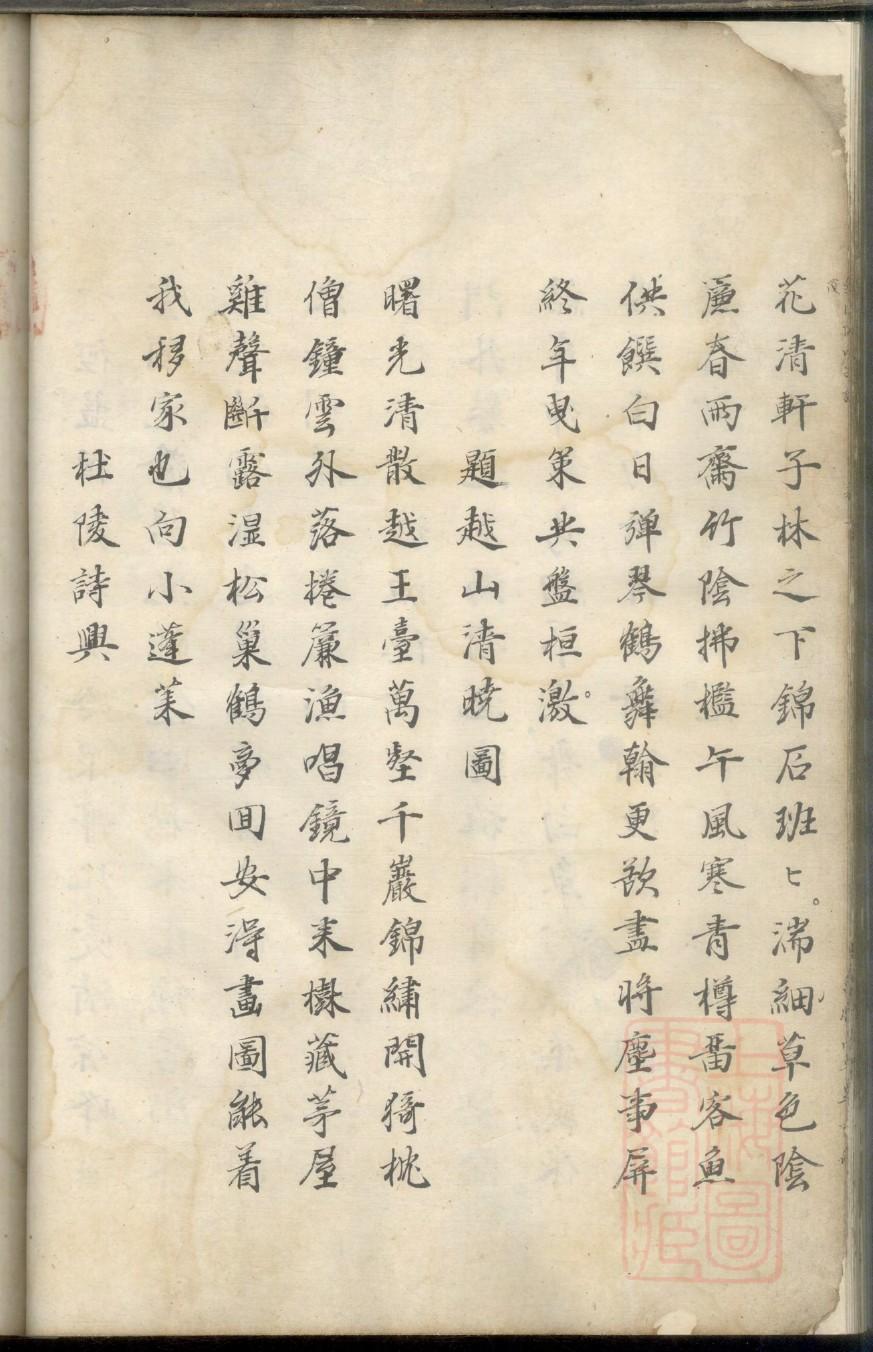 花清軒子林之下錦石班〻湍細草色陰
簾春雨齋竹陰拂檻午風寒青樽留客魚
供饌白日彈琴鶴舞翰更欲盡將塵事屏
終年曳策共盤桓激
題越山清曉圖
曙光清散越王臺萬壑千巖錦繡開猗枕
僧鐘雲外落捲簾漁唱鏡中来樹藏茅屋
雞聲斷露湿松巢鶴夢囬安得畫圖能着
我移家也向小蓬莱
杜陵詩興